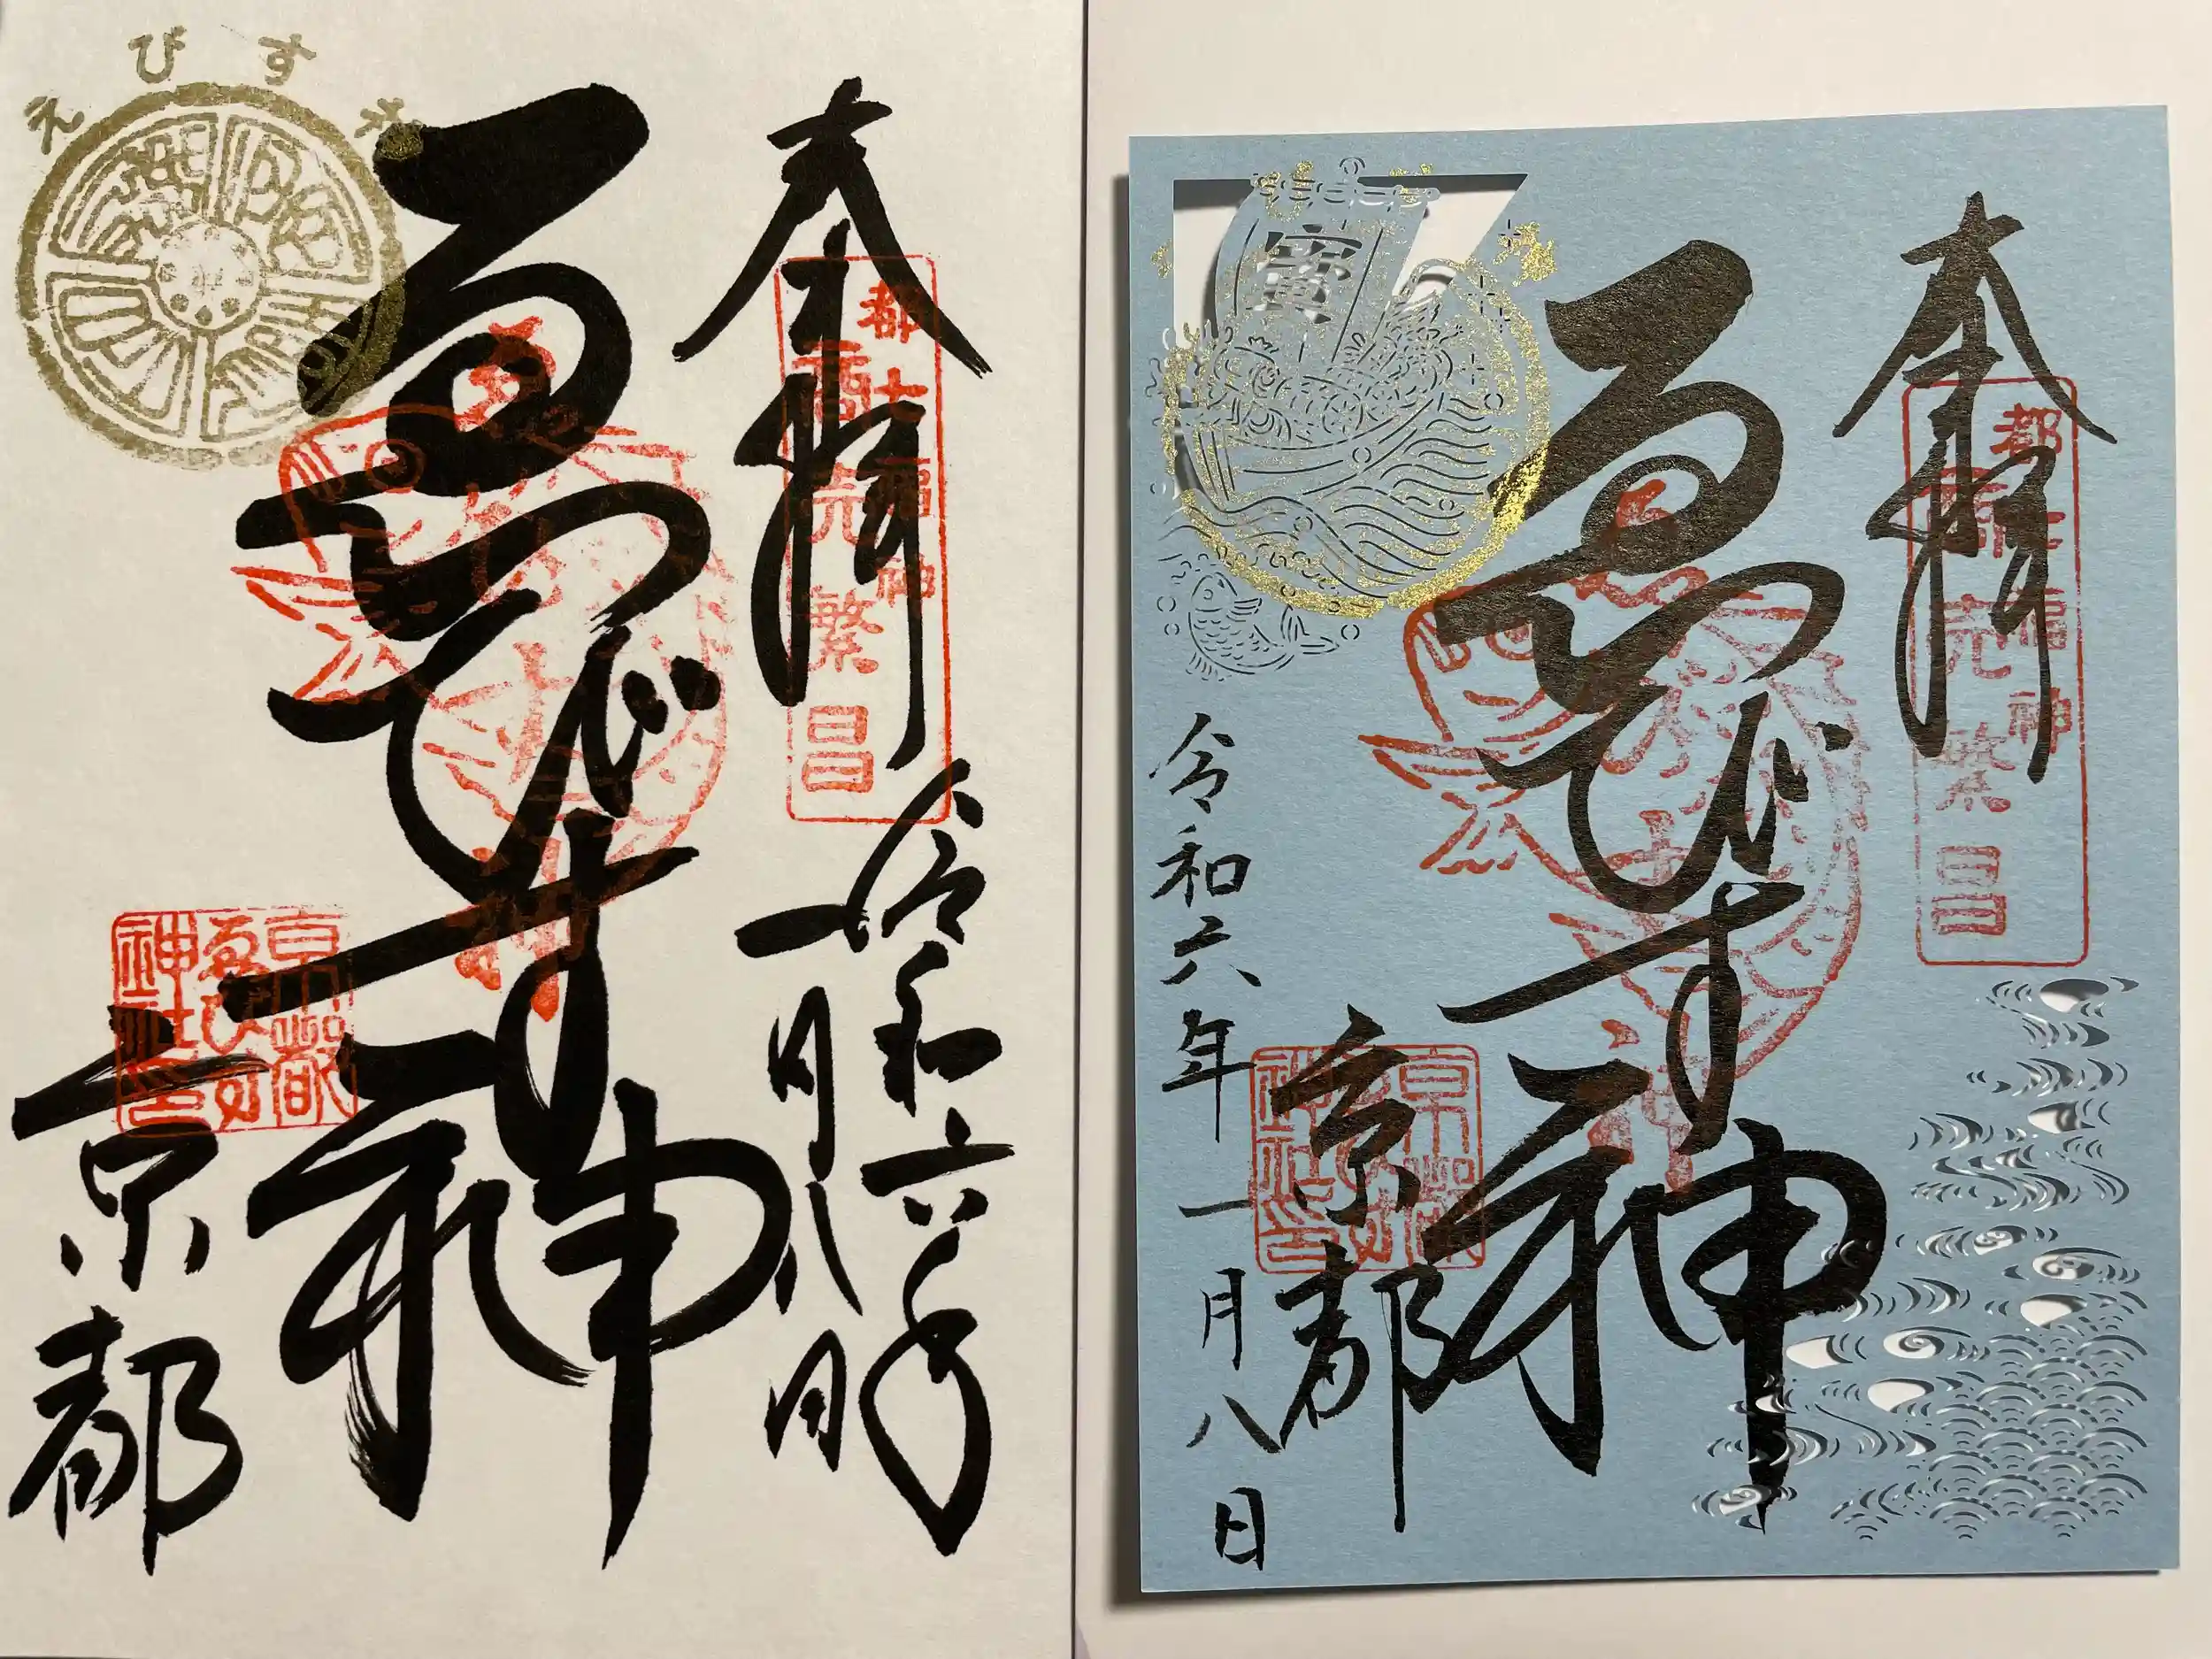 奉拝
都七福神
商売繁昌
令和六年
一月八日
ゑびす神
えびす
京都
京都
ゑびす
神社印
奉拝
都七福神
商売繁昌
ゑびす神
寳
京都
京都
ゑびす
神社印
令和六年一月八日